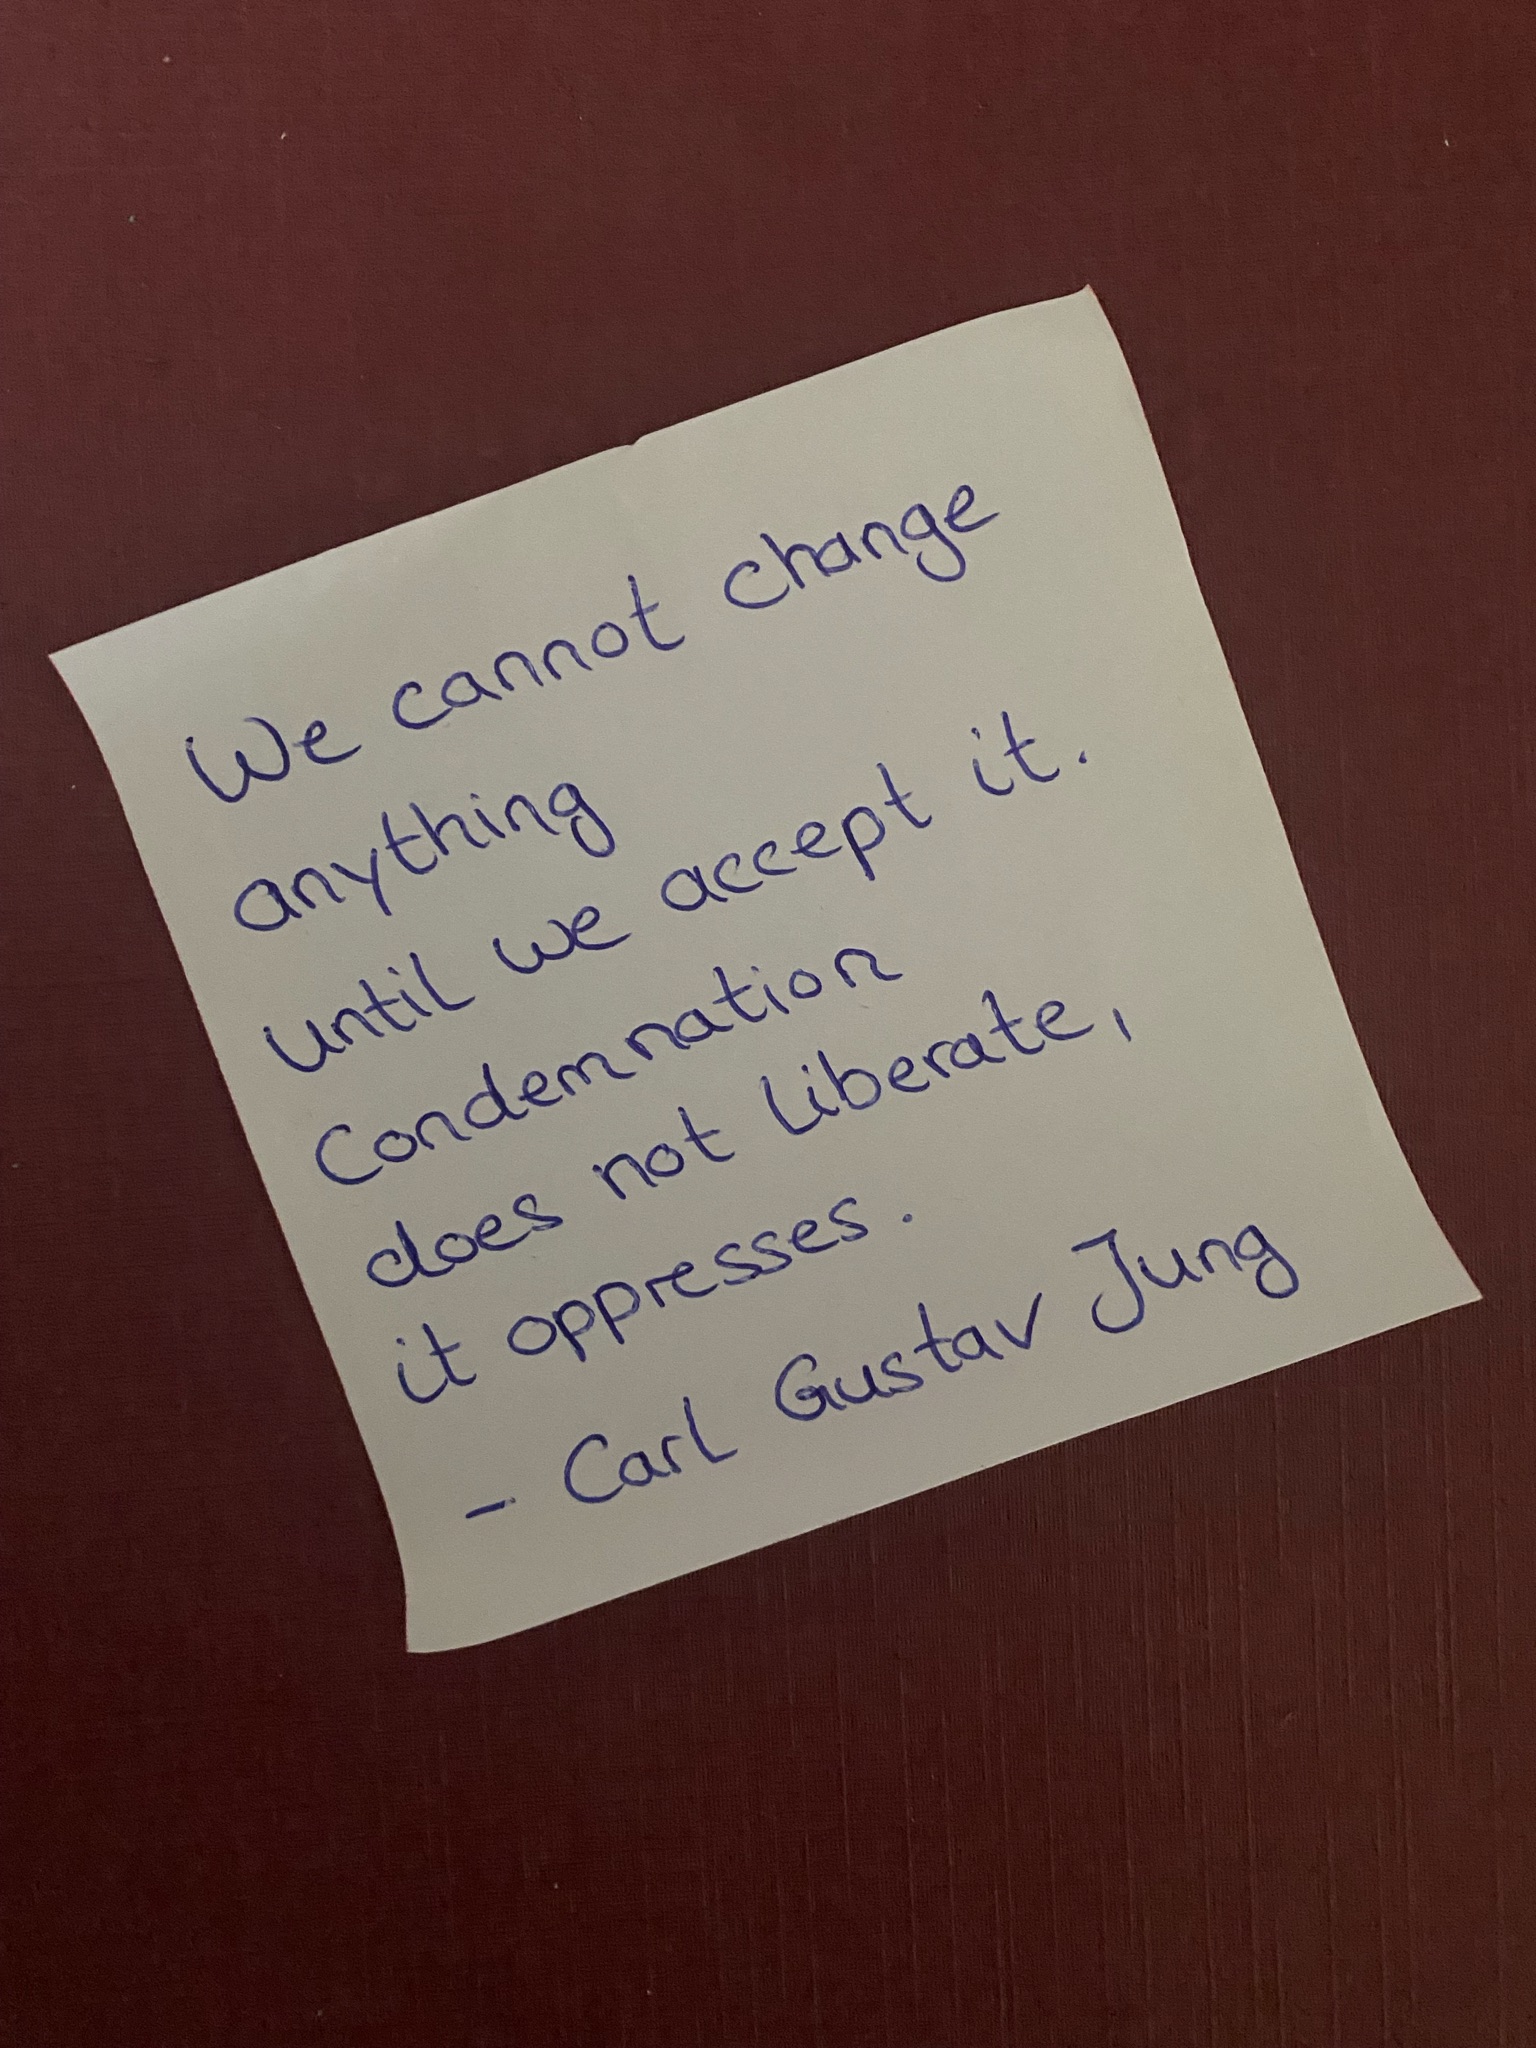 We cannot change
anything
until we accept it.
Condemnation
does not liberate,
it oppresses.
- Carl Gustav Jung